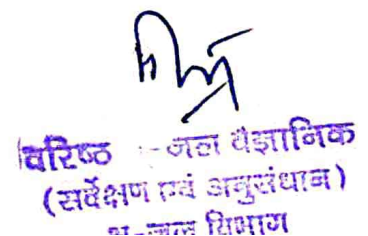 वरिष्ठ :- जल वैज्ञानिक
(सर्वेक्षण एवं अनुसंधान)
भू-जल विभाग